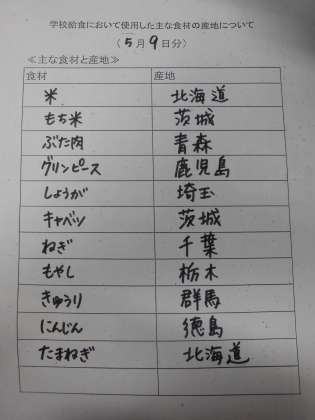 学校給食において使用した主な食材の産地について
(5月9日分)
≪主な食材と産地≫
食材 産地
米 北海道
もち米 茨城
ぶた肉 青森
グリンピース 鹿児島
しょうが 埼玉
キャベツ 茨城
ねぎ 千葉
もやし 栃木
きゅうり 群馬
にんじん 徳島
たまねぎ 北海道